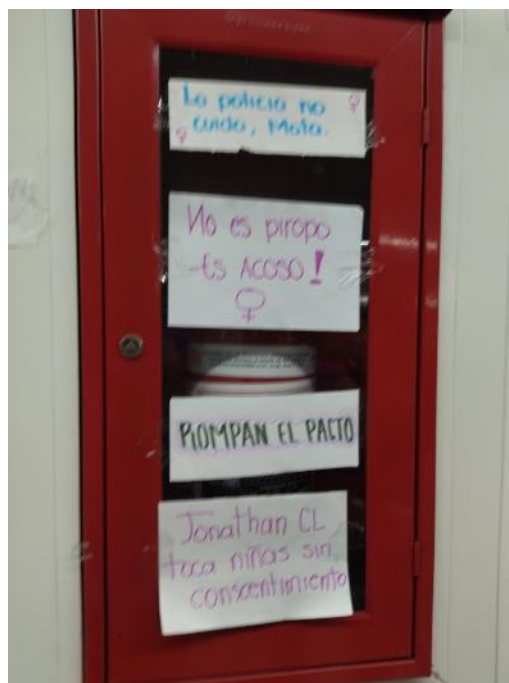 La policia no
cuida, Mata.
No es piropo
-Es ACOSO!
ROMPAN EL PACTO
Jonathan CL
toca niñas sin
conscentimiento